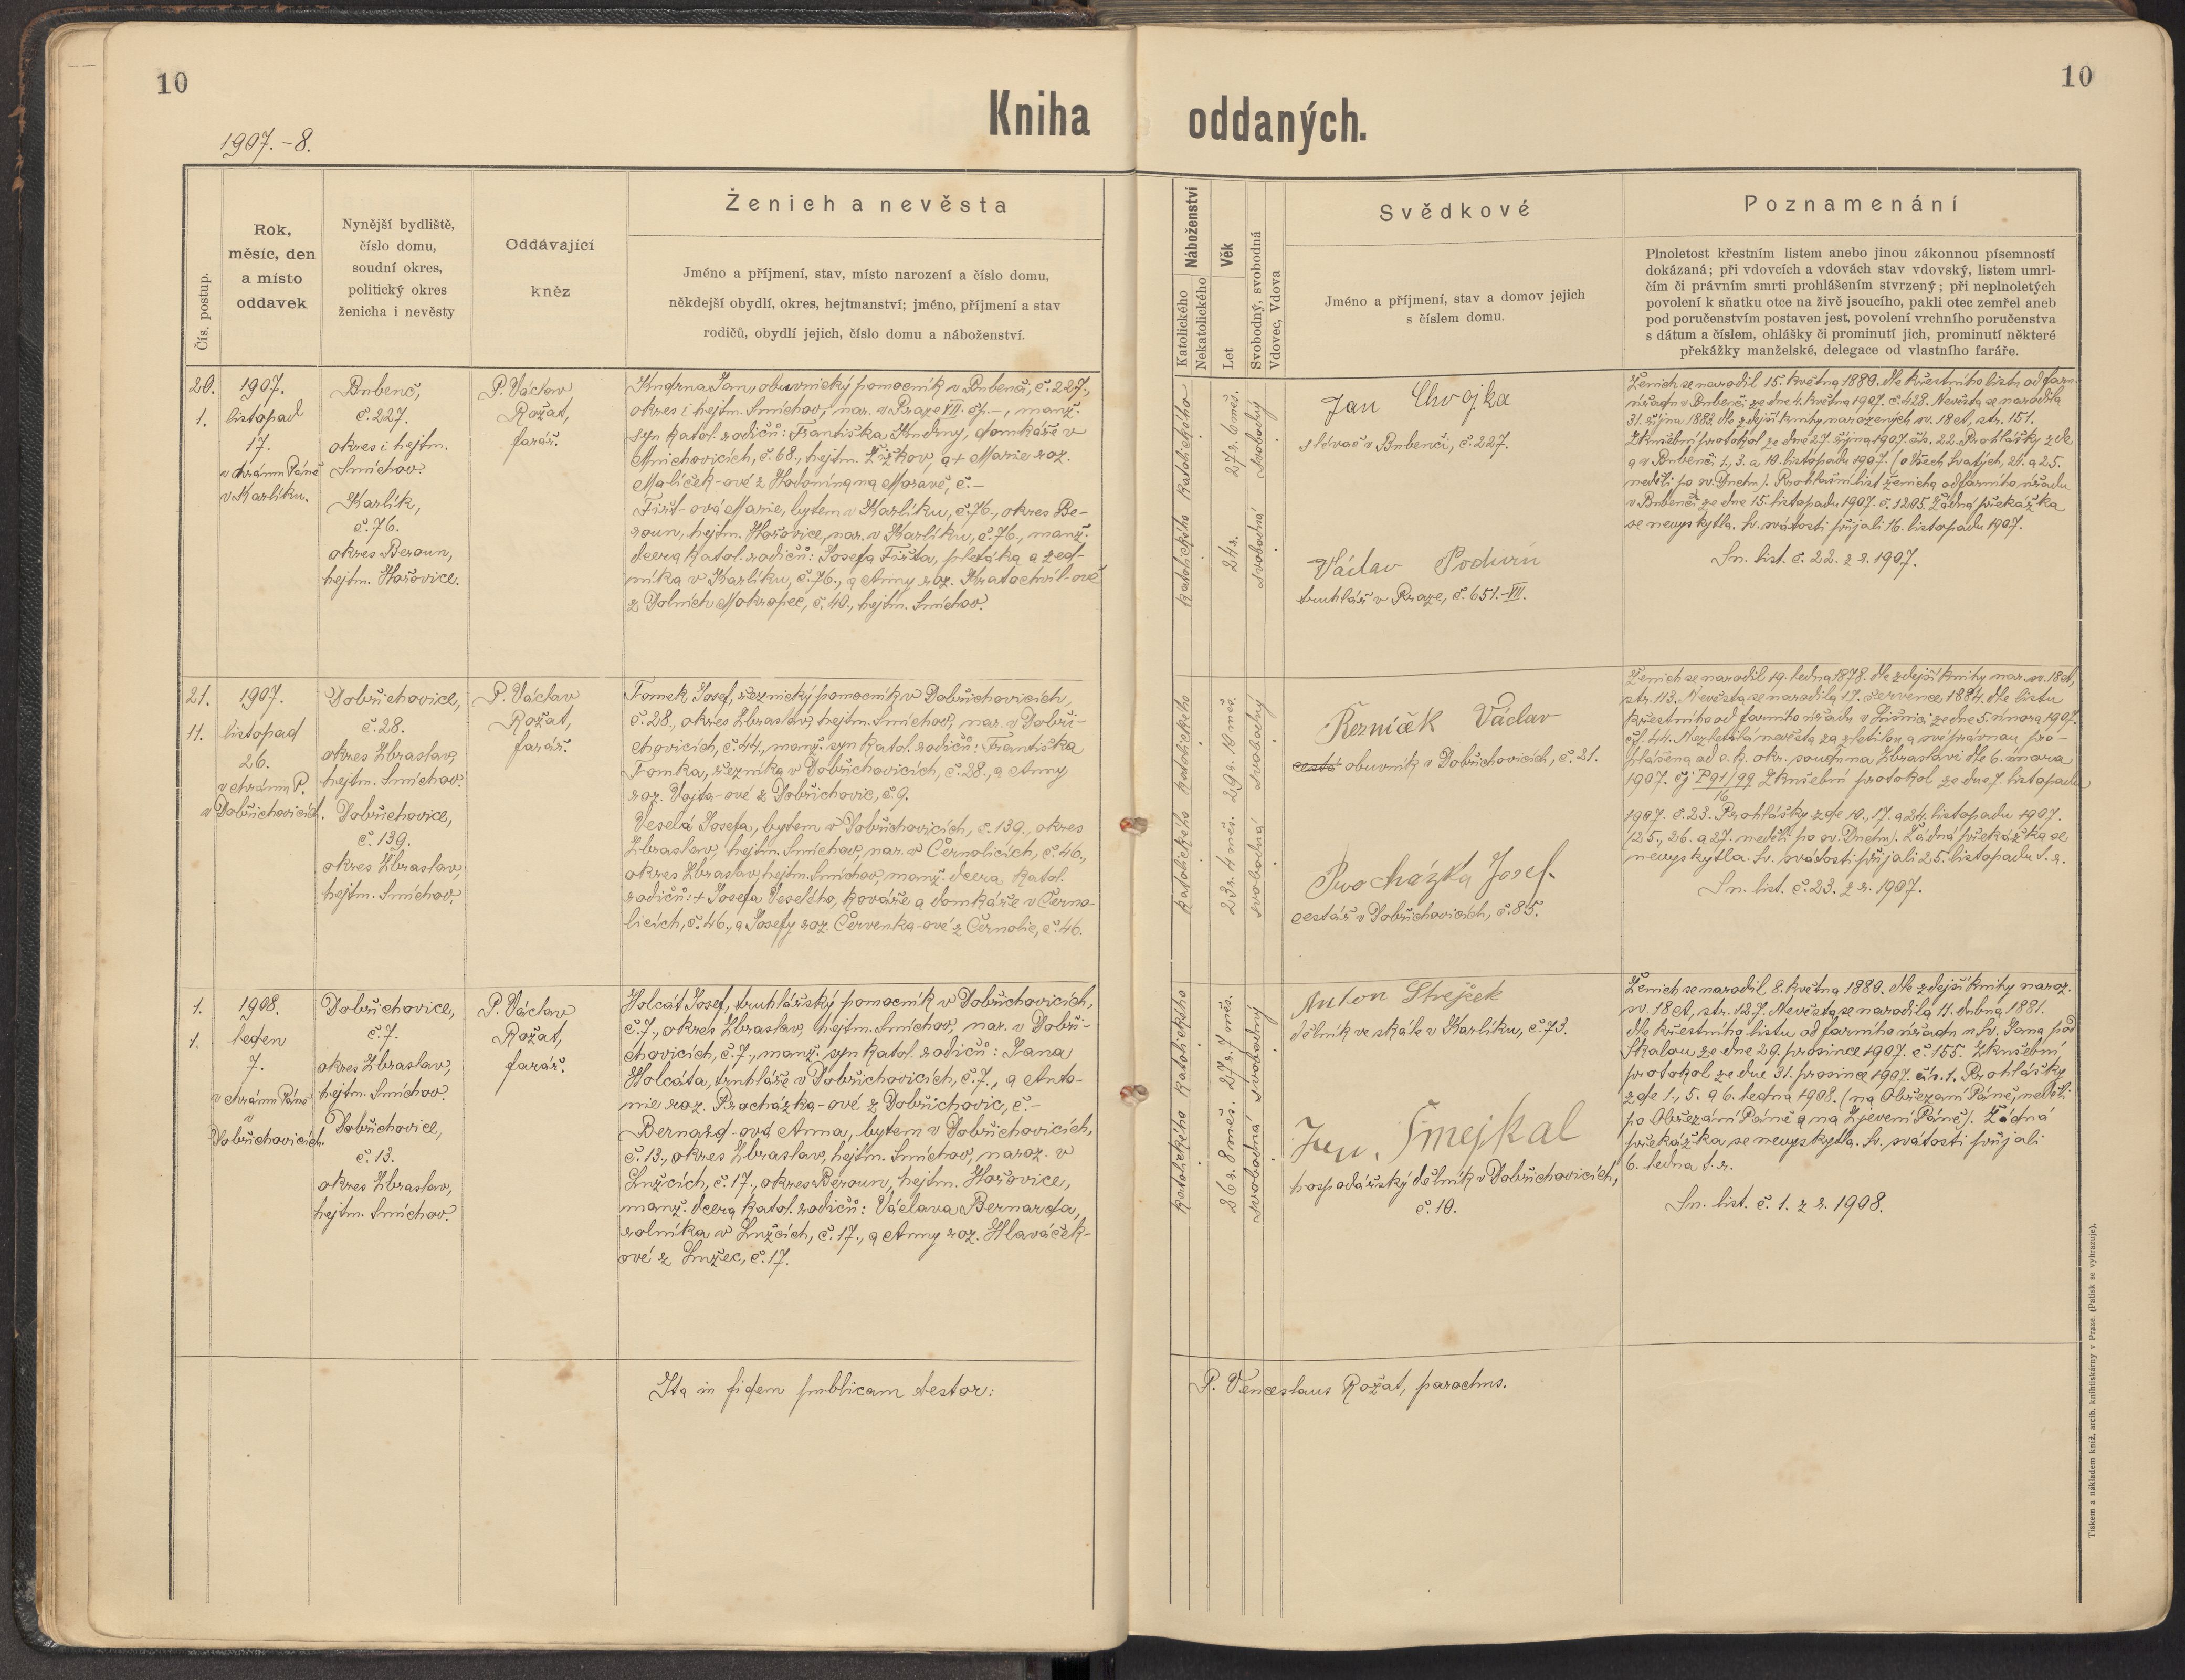 10
10
Kniha oddaných.
1907.-8.
Čís. postup.
Rok,
měsíc, den
a místo
oddavek
Nynější bydliště,
číslo domu,
soudní okres,
politický okres
ženicha i nevěsty
Oddávající
kněz
Ženich a nevěsta
Jméno a příjmení, stav, místo narození a číslo domu,
někdejší obydlí, okres, hejtmanství; jméno, příjmení a stav
rodičů, obydlí jejich, číslo domu a náboženství.
Náboženství
Katolického
Nekatolického
Věk
Let
Svobodný, svobodná
Vdovec, Vdova
Svědkové
Jméno a příjmení, stav a domov jejich
s číslem domu.
Poznamenání
Plnoletost křestním listem anebo jinou zákonnou písemností
dokázaná; při vdovcích a vdovách stav vdovský, listem umrl-
čím či právním smrti prohlášením stvrzený; při neplnoletých
povolení k sňatku otce na živě jsoucího, pakli otec zemřel aneb
pod poručenstvím postaven jest, povolení vrchního poručenstva
s dátum a číslem, ohlášky či prominutí jich, prominutí některé
překážky manželské, delegace od vlastního faráře.
20.
1.
1907.
listopad
17.
v chrámu Páně
v Karlíku.
Bubenč,
č. 227.
okres i hejtm.
Smíchov.
Karlík,
č. 76.
okres Beroun,
hejtm. Hořovice.
P. Václav
Rožat,
farář.
Kudrna Jan, obuvnický pomocník v Bubenči, č. 227.,
okres i hejtm. Smíchov, nar. v Praze VII. čp. –, manž.
syn katol. rodičů: Františka Kudrny, domkáře v
Mnichovicích, č. 68., hejtm. Žižkov, a + Marie roz.
Malíček-ové z Hodonína na Moravě, č. –
Fišt-ová Marie, bytem v Karlíku, č. 76., okres Be-
roun, hejtm. Hořovice, nar. v Karlíku, č. 76., manž.
dcera katol. rodičů: Josefa Fišta, pletáka a zed-
níka v Karlíku, č. 76., a Anny roz. Kratochvíl-ové
z Dolních Mokropec, č. 40., hejtm. Smíchov.
katolického katolického
27 r. 6 měs.
24 r.
svobodný
svobodná
Jan Chvojka
slévač v Bubenči, č. 227.
Václav Podivín
truhlář v Praze, č. 651.-VII.
Ženich se narodil 15. května 1880. dle křestního listu od farn.
úřadu v Bubenči ze dne 4. května 1907. č. 428. Nevěsta se narodila
31. října 1883 dle zdejší knihy narozených sv. 18 A, str. 151.
Zkušební protokol ze dne 27. října 1907. čís. 22. Prohlášky zde
a v Bubenči 1., 3. a 10. listopadu 1907. (o Všech Svatých, 24. a 25.
neděli po sv. Duchu). Prohlašní list ženicha od farního úřadu
v Bubenči ze dne 15. listopadu 1907. č. 1205. Žádná překážka
se nevyskytla. Sv. svátosti přijali 16. listopadu 1907.
Sn. list. č. 22. z r. 1907.
21.
11.
1907.
listopad
26.
v chrámu P.
v Dobřichovicích.
Dobřichovice,
č. 28.
okres Zbraslav,
hejtm. Smíchov.
Dobřichovice,
č. 139.
okres Zbraslav,
hejtm. Smíchov.
P. Václav
Rožat,
farář.
Tomek Josef, řeznický pomocník v Dobřichovicích,
č. 28., okres Zbraslav, hejtm. Smíchov, nar. v Dobři-
chovicích, č. 44., manž. syn katol. rodičů: Františka
Tomka, řezníka v Dobřichovicích, č. 28., a Anny
roz. Vojta-ové z Dobřichovic, č. 9.
Veselá Josefa, bytem v Dobřichovicích, č. 139., okres
Zbraslav, hejtm. Smíchov, nar. v Černolicích, č. 46.,
okres Zbraslav, hejtm. Smíchov, manž. dcera katol.
rodičů: + Josefa Veselého, kováře a domkáře v Černo-
licích, č. 46., a Josefy roz. Červenka-ové z Černolic, č. 46.
katolického katolického
29 r. 10 měs.
23 r. 4 měs.
svobodný
svobodná
Řezníček Václav
cestá obuvník v Dobřichovicích, č. 21.
Procházka Josef
cestář v Dobřichovicích, č. 85.
Ženich se narodil 19. ledna 1878. dle zdejší knihy nar. sv. 18 A,
str. 113. Nevěsta se narodila 17. července 1884. dle listu
křestního od farního úřadu v Líšnici ze dne 5. února 1907.
čj. 44. Nezletilá nevěsta za zletilou a svéprávnou pro-
hlášena od c. k. okr. soudu na Zbraslavi dle 6. února
1907. čj P 91/99 Zkušební protokol ze dne 7. listopadu
16
1907. č. 23. Prohlášky zde 10., 17. a 24. listopadu 1907.
(25., 26. a 27. neděli po sv. Duchu). Žádná překážka se
nevyskytla. Sv. svátosti přijali 25. listopadu t. r.
Sn. list. č. 23. z r. 1907.
1.
1.
1908.
leden
7.
v chrámu Páně
v
Dobřichovicích.
Dobřichovice,
č. 7.
okres Zbraslav,
hejtm. Smíchov.
Dobřichovice,
č. 13.
okres Zbraslav,
hejtm. Smíchov.
P. Václav
Rožat,
farář.
Holcát Josef, truhlářský pomocník v Dobřichovicích,
č. 7., okres Zbraslav, hejtm. Smíchov, nar. v Dobři-
chovicích, č. 7., manž. syn katol. rodičů: Jana
Holcáta, truhláře v Dobřichovicích, č. 7., a Anto-
nie roz. Procházka-ové z Dobřichovic, č. –
Bernard-ová Anna, bytem v Dobřichovicích,
č. 13., okres Zbraslav, hejtm. Smíchov, naroz. v
Lužcích, č. 17., okres Beroun, hejtm. Hořovice,
manž. dcera katol. rodičů: Václava Bernarda,
rolníka v Lužcích, č. 17., a Anny roz. Hlaváček-
ové z Lužec, č. 17.
katolického katolického
27 r. 7 měs.
26 r. 8 měs.
svobodný
svobodná
Anton Strejček
dělník ve skále v Karlíku, č. 73.
Jan. Šmejkal
hospodářský dělník v Dobřichovicích,
č. 10.
Ženich se narodil 8. května 1880. dle zdejší knihy naroz.
sv. 18 A, str. 127. Nevěsta se narodila 11. dubna 1881.
dle křestního listu od farního úřadu u Sv. Jana pod
Skalou ze dne 29. prosince 1907. č. 155. Zkušební
protokol ze dne 31. prosince 1907. čís. 1. Prohlášky
zde 1., 5. a 6. ledna 1908. (na Obřezání Páně, neděli
po Obřezání Páně a na Zjevení Páně). Žádná
překážka se nevyskytla. Sv. svátosti přijali
6. ledna t. r.
Sn. list. č. 1. z r. 1908.
Ita in fidem publicam testor:
P. Venceslaus Rožat, parochus.
Tiskem a nákladem kníž. arcib. knihtiskárny v Praze. (Patisk se vyhrazuje).